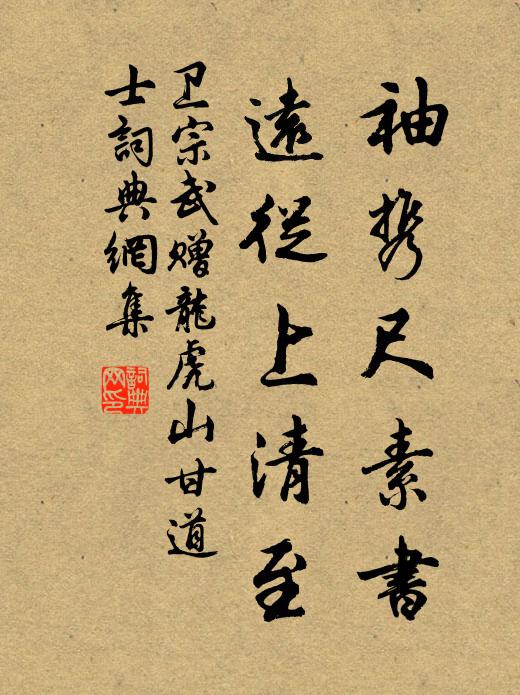 袖携尺素書
遠從上清至
卫宗武赠龍虎山甘道
士詞典網集
詞典網印